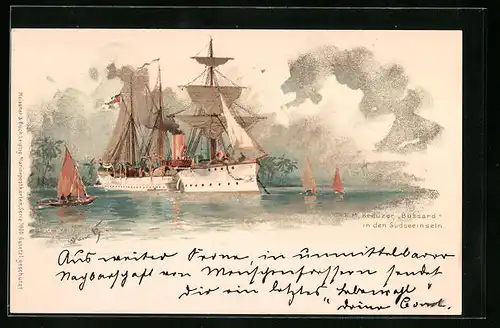 S.M. Kreuzer "Bussard"
in den Südseeinseln.
Aus weiter Ferne, in unmittelbarer
Nachbarschaft von Menschenfressern sendet
Dir ein letztes "Lebewohl"
deine
Meissner & Buch, Leipzig, Marinepostkarten, Serie
gesetzl. geschützt